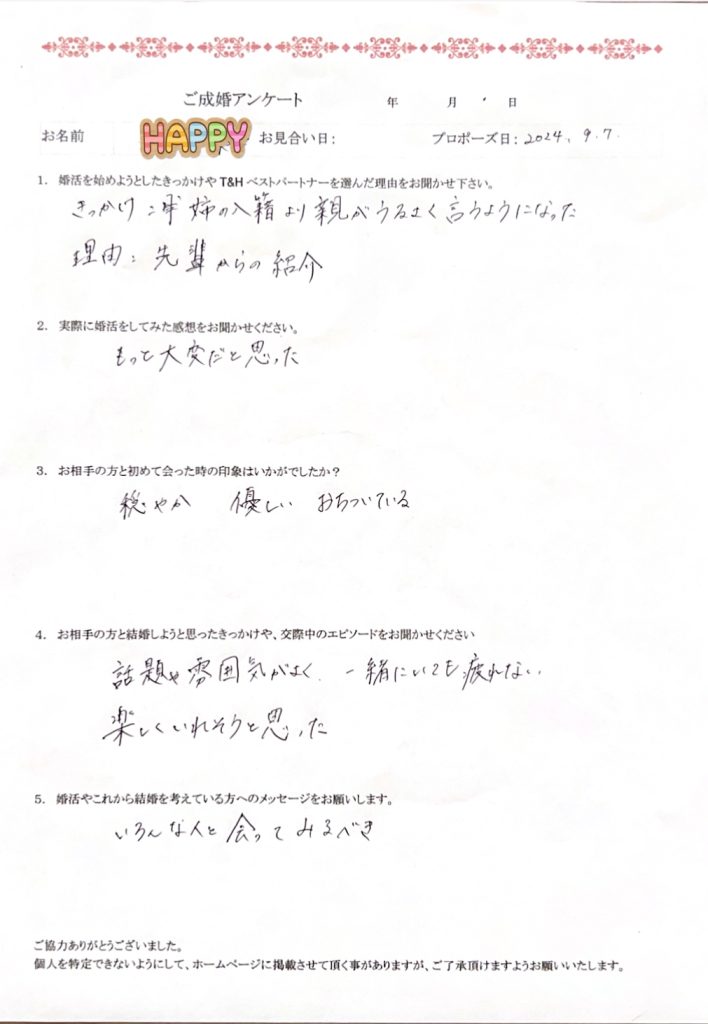 ご成婚アンケート 年 月 日
お名前 HAPPY お見合い日: プロポーズ日: 2024. 9.7.
1. 婚活を始めようとしたきっかけや T&H ベストパートナーを選んだ理由をお聞かせ下さい。
きっかけ: 姉の入籍より親がうるさく言うようになった
理由: 先輩からの紹介
2. 実際に婚活をしてみた感想をお聞かせください。
もっと大変だと思った
3. お相手の方と初めて会った時の印象はいかがでしたか?
穏やか 優しい おちついている
4. お相手の方と結婚しようと思ったきっかけや、交際中のエピソードをお聞かせください
話題や雰囲気がよく、一緒にいても疲れない
楽しくいれそうと思った
5. 婚活やこれから結婚を考えている方へのメッセージをお願いします。
いろんな人と会ってみるべき
ご協力ありがとうございました。
個人を特定できないようにして、ホームページに掲載させて頂く事がありますが、ご了承頂けますようお願いいたします。